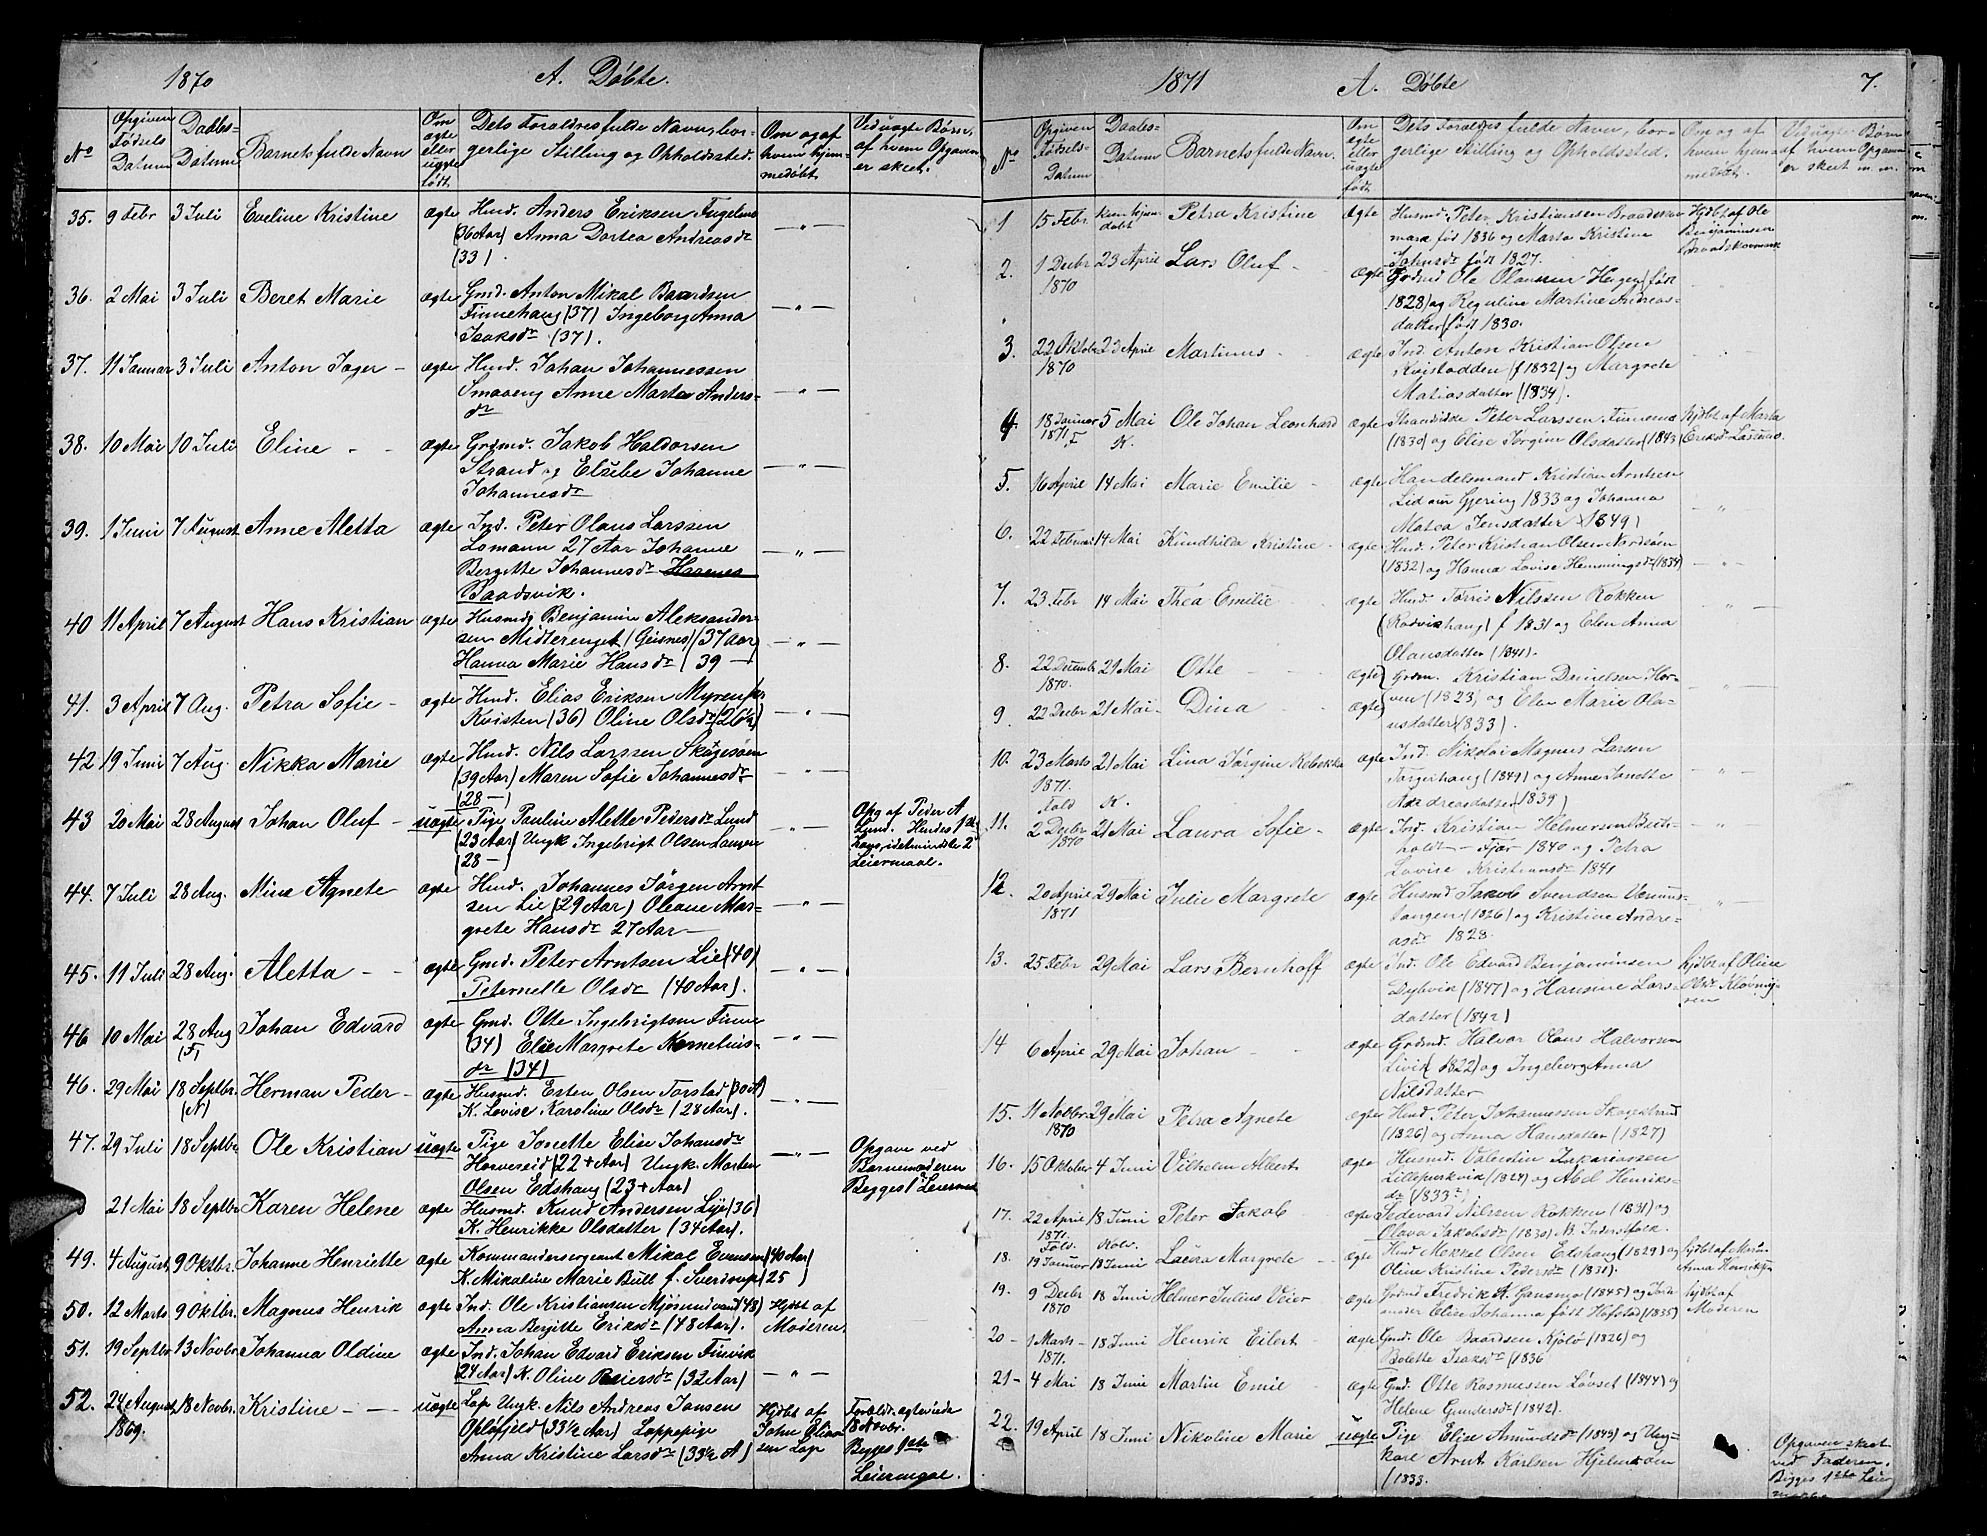 1870
A. Döbte.
No
Opgiven Fødsels Datum
Daabs-Datum
Barnets fulde Navn
Om ægte eller uægte født
Dets Forældres fulde Navn, bor-
gerlige Stilling og Opholdssted.
Om og af hvem hjem-
medøbt
Ved uægte Børn,
af hvem Opgaven
er skeet.
35. 9 Febr 3 Juli Eveline Kristine ægte Hmd. Anders Eriksen Fuglem
(36 Aar) Anna Dortea Andreasdr —„—
(33).
36. 2 Mai 3 Juli Beret Marie ægte Gmd. Anton Mikal Baardsen
Finnehaug (37) Ingeborg Anna —„—
Isaksdr (37).
37. 11 Januar 3 Juli Anton Jager — ægte Hmd. Johan Johannessen
Smaaeng Anne Marta Anders- —„—
dr
38. 10 Mai 10 Juli Eline - - ægte Grdmd. Jakob Haldorsen
Strand og Elsebe Johanne —„—
Johannesdr
39. 1 Juni 7 August Anne Aletta ægte Ind. Peter Olaus Larssen
Lomann 27 Aar Johanne —„—
Bergitte Johannesdr
Baadsvik.
40 11 April 7 August Hans Kristian ægte Husmd Benjamin Aleksander-
sen Midterenget (Geisnes) (37 Aar) —„—
Hanna Marie Hansdr (39 —
41. 3 April 7 Aug. Petra Sofie — ægte Hmd. Elias Eriksen Myren
Kvisten (36) Oline Olsdr (26½) —„—
42 19 Juni 7 Aug. Nikka Marie ægte Hmd. Nils Larssen Skagesøen
(39 Aar) Maren Sofie Johannesdr —„—
(28 —)
43 20 Mai 28 August Johan Oluf — uægte Pige Pauline Alette Pedersdr Lund Opg af Peder A
(23 Aar) Ungk Ingebrigt Olsen —„— Lund. Hendes 1ste
(28 —) hans, idetmindste 2
Leiermaal.
44. 7 Juli 28 Aug. Mine Agnete ægte Hmd. Johannes Jörgen Arnt
sen Lie (29 Aar) Oleane Mar- —„—
grete Hansdr 27 Aar —
45. 11 Juli 28 Aug. Aletta — - ægte Gmd. Peter Arntsen Lie (40)
Peternelle Olsdr (40 Aar). —„—
46 10 Mai 28 Aug Johan Edvard ægte Gmd. Otte Ingebrigtsen Finne
(F) (34) Elie Margrete Kornelius- —„—
dr (34)
46. 29 Mai 18 Septbr. Herman Peder — ægte Husmd. Esten Olsen Torstad (30 A)
(N) K. Lovise Karoline Olsdr (28 Aar). —„—
47. 29 Juli 18 Septbr Ole Kristian uægte Pige Jonette Elise Johansdr Opgave ved
(22 + Aar) Ungk. Morten —„— Barnemoderen
Olsen Edshaug (23 + Aar) Begges 1ste Leiermaal
21 Mai 18 Septbr Karen Helene ægte Husmd. Knud Andersen Lie (36)
K. Henrikke Olsdatter (34 Aar).
49. 4 August 9 Oktbr. Johanne Henriette ægte Kommandersergeant Mikal Evensen (40 Aar)
K. Mikaline Marie Bull f. Sverdrup (25 )
50. 12 Marts 9 Oktbr. Magnus Henrik ægte Ind. Ole Kristiansen Mjösund (48) Hjdbt af
Anna Bergitte Eriksdr (48 Aar). Moderen.
51. 19 Septbr 13 Novbr. Johanna Oldine ægte Ind. Johan Edvard Eriksen Finvik
24 Aar) K. Oline Beiersdr (32 Aar) —„—
52. 24 August 18 Novbr. Kristine — — uægte Lap Ungk. Nils Andreas Jonsen Hjdbt af Forældr. ægteviede
1869. Opløfjeld (33½ Aar) Lappepige John Elias 18 Novbr.
Anna Kristine Larsdr (33½ A) sen Lap Begges 1ste
Leiermaal.
1871
A. Døbte
7.
No
Opgiven Fødsels-Datum
Daabs-Datum
Barnets fulde Navn.
Om ægte eller uægte født
Dets Forældres fulde Navn, bor-
gerlige Stilling og Opholdssted.
Om og af hvem hjem-
medøbt.
Ved uægte Børn
af hvem Opgaven
er skeet m. m.
1 15 Febr kun hjem- Petra Kristine ægte Husmd Peter Kristiansen Braadskov Hjdbt af Ole
døbt mark fød 1836 og Marta Kristine Benjaminsen
Johnsdr født 1827. Braadskovmark
2. 1 Decbr 23 April Lars Oluf - ægte Grdmd Ole Olaussen Hagen (født
1870 1828) og Reguline Martine Andreas-
datter (født 1830.
3. 22 Oktobr 23 April Martinus - ægte Ind. Anton Kristian Olsen
1870 Kvistodden (f 1832) og Margrete
Matiasdatter (1834).
4. 18 Januar 5 Mai Ole Johan Leonhard ægte Strandsidde Peter Larssen Finnemo hjdbt af Marta
1871 F K. (1830) og Elise Jørgine Olsdatter (1843)
5. 16 April 14 Mai Marie Emilie - ægte Handelsmand Kristian Arntsen
Gjering 1833 og Johanna
Matea Jensdatter (1849)
6. 22 Februar 14 Mai Kundhilda Kristine - ægte Hmd. Peter Kristian Olsen Nordsöen
(1832) og Hanna Lovise Hemmingsdr (1834) —„—
7. 23 Febr 14 Mai Thea Emilie ægte Hmd. Torris Nilssen Rokken
(Rødvikhaug) f 1831 og Elen Anna —„—
Olausdatter (1841).
8. 22 Decembr 21 Mai Otte - ægte Grdm. Kristian Danielsen Hor-
1870. ven (1823) og Elen Marie Ola-
9 22 Decbr 21 Mai - Dina ægte usdatter (1833).
10. 23 Marts 21 Mai Lina Jørgine Rebekka ægte Ind. Nikolai Magnus Larsen
1871. Torgerhaug (1849) og Anne Jonette —„—
Fold K. Andreasdatter (1839)
11. 2 Decbr 21 Mai Laura Sofie - ægte Ind. Kristian Helmersen Buk-
1870 holdt — Fjær 1840 og Petra
Lovise Kristiansdr 1841
12. 20 April 29 Mai Julie Margrete ægte Husmd Jakob Svendsen Vennes-
1871 tangen (1826) og Kristine Andre-
asdr 1828.
13. 25 Febr 29 Mai Lars Bernhoff ægte Ind. Ole Edvard Benjaminsen hjdbt af Oline
Dybvik (1847) og Hansine Lars- Olsdr
datter (1842)
14 6 April 29 Mai Johan - - ægte Grdmd. Halvor Olaus Halvorsen
Livik (1822) og Ingeborg Anna
Nilsdatter
15. 11 Novbr 29 Mai Petra Agnete ægte Hmd Peter Johannessen Skagestrand
1870 (1826) og Anna Hansdatter (1827)
16. 15 Oktober 4 Juni Vilhelm Albert ægte Husmd. Valentin Zakariassen
Lillepurkvik (1824) og Abel Henriks-
dr (1833)
17. 22 April 18 Juni Peter Jakob ægte Sedevard Nilssen Rokken (1831) og
1871. Fold. Kolv. Olava Jakobsdr (1830) N. Inderstfolk.
18. 19 Januar 18 Juni Laura Margrete - ægte Hmd Mekkel Olsen Edshaug (1829) og hjdbt af Maren
Oline Kristine Pedersdr (1831). Anna Henriksdr
19. 9 Decbr 18 Juni Helmer Julius Veier ægte Grdmd Fredrik K. Gansmo (1845) og Jord- hjdbt af
1870 moder Elise Johanna født Hofstad (1835) Moderen
20- 1 Marts 18 Juni Henrik Eilert - ægte Gmd. Ole Baardsen Kjölö (1826) og
1871. Bolette Isaksdr (1836
21- 4 Mai 18 Juni Martin Emil - ægte Gmd. Otte Rasmussen Løvset (1844) og
Helene Gundersdr (1842).
22. 19 April 18 Juni Nikoline Marie uægte Pige Elise Amundsdr (1849) og Ung- Opgaven skeet
karl Arnt Karlsen Hjelmsöen ved Faderen.
(1833. Begges 1ste Leier